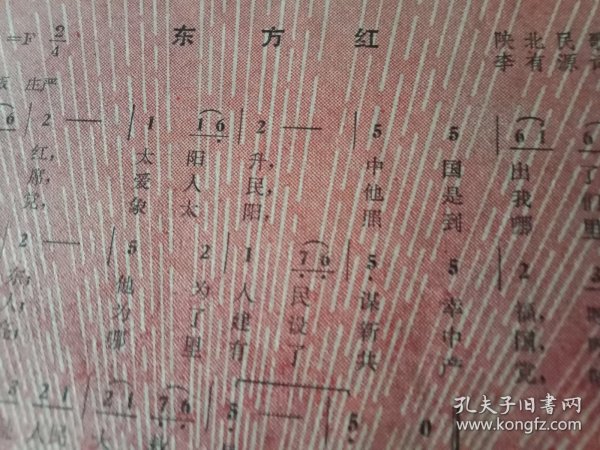 =F 2/4 东方红 陕北民歌
庄严 李有源词
6 | 2 — | 1 1 6 | 2 — | 5 5 | 6 1 6
红, 太 阳 升, 中 国 出 了
席, 爱 人 民, 他 是 我 们
党, 象 太 阳, 照 到 哪 里
2 — | 5 2 | 1 7 6 | 5 5 | 2 3
东; 他 为 人 民 谋 幸 福,
人; 为 了 建 设 新 中 国,
哪 里 有 了 共 产 党,
3 2 1 | 2 1 7 6 | 5 — 5 0
人民 大
孔夫子旧书网
www.kongfz.com